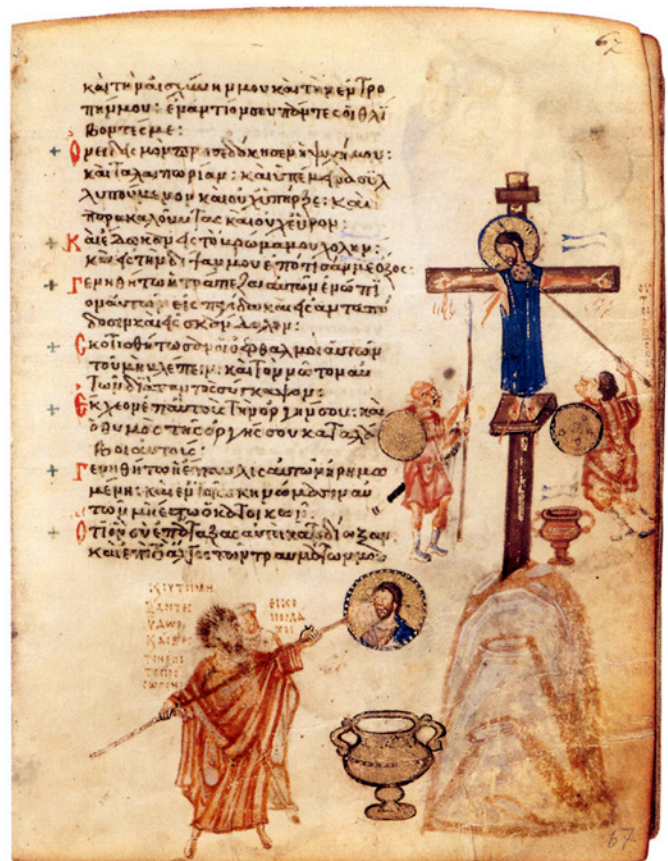 καὶ τὴν αἰσχύνην μου καὶ τὴν ἐντρο
πήν μου: ἐναντίον σου πάντες οἱ θλί
βοντές με:
Ὀνειδισμὸν προσεδόκησεν ἡ ψυχή μου:
καὶ ταλαιπωρίαν: καὶ ὑπέμεινα συλ
λυπούμενον καὶ οὐχ ὑπῆρξε: καὶ
παρακαλοῦντας καὶ οὐχ εὗρον:
Καὶ ἔδωκαν εἰς τὸ βρῶμά μου χολήν:
καὶ εἰς τὴν δίψαν μου ἐπότισάν με ὄξος:
Γενηθήτω ἡ τράπεζα αὐτῶν ἐνώπι
ον αὐτῶν εἰς παγίδα καὶ εἰς ἀνταπό
δοσιν καὶ εἰς σκάνδαλον:
Σκοτισθήτωσαν οἱ ὀφθαλμοὶ αὐτῶν
τοῦ μὴ βλέπειν: καὶ τὸν νῶτον αὐ
τῶν διὰ παντὸς σύγκαμψον:
Ἔκχεον ἐπ αὐτοὺς τὴν ὀργήν σου: καὶ
ὁ θυμὸς τῆς ὀργῆς σου καταλά
βοι αὐτούς:
Γενηθήτω ἡ ἔπαυλις αὐτῶν ἠρημω
μένη: καὶ ἐν τοῖς σκηνώμασιν αὐ
τῶν μὴ ἔστω ὁ κατοικῶν:
Ὅτι ὃν σὺ ἐπάταξας αὐτοὶ κατεδίωξαν
καὶ ἐπὶ τὸ ἄλγος τῶν τραυμάτων μου
67